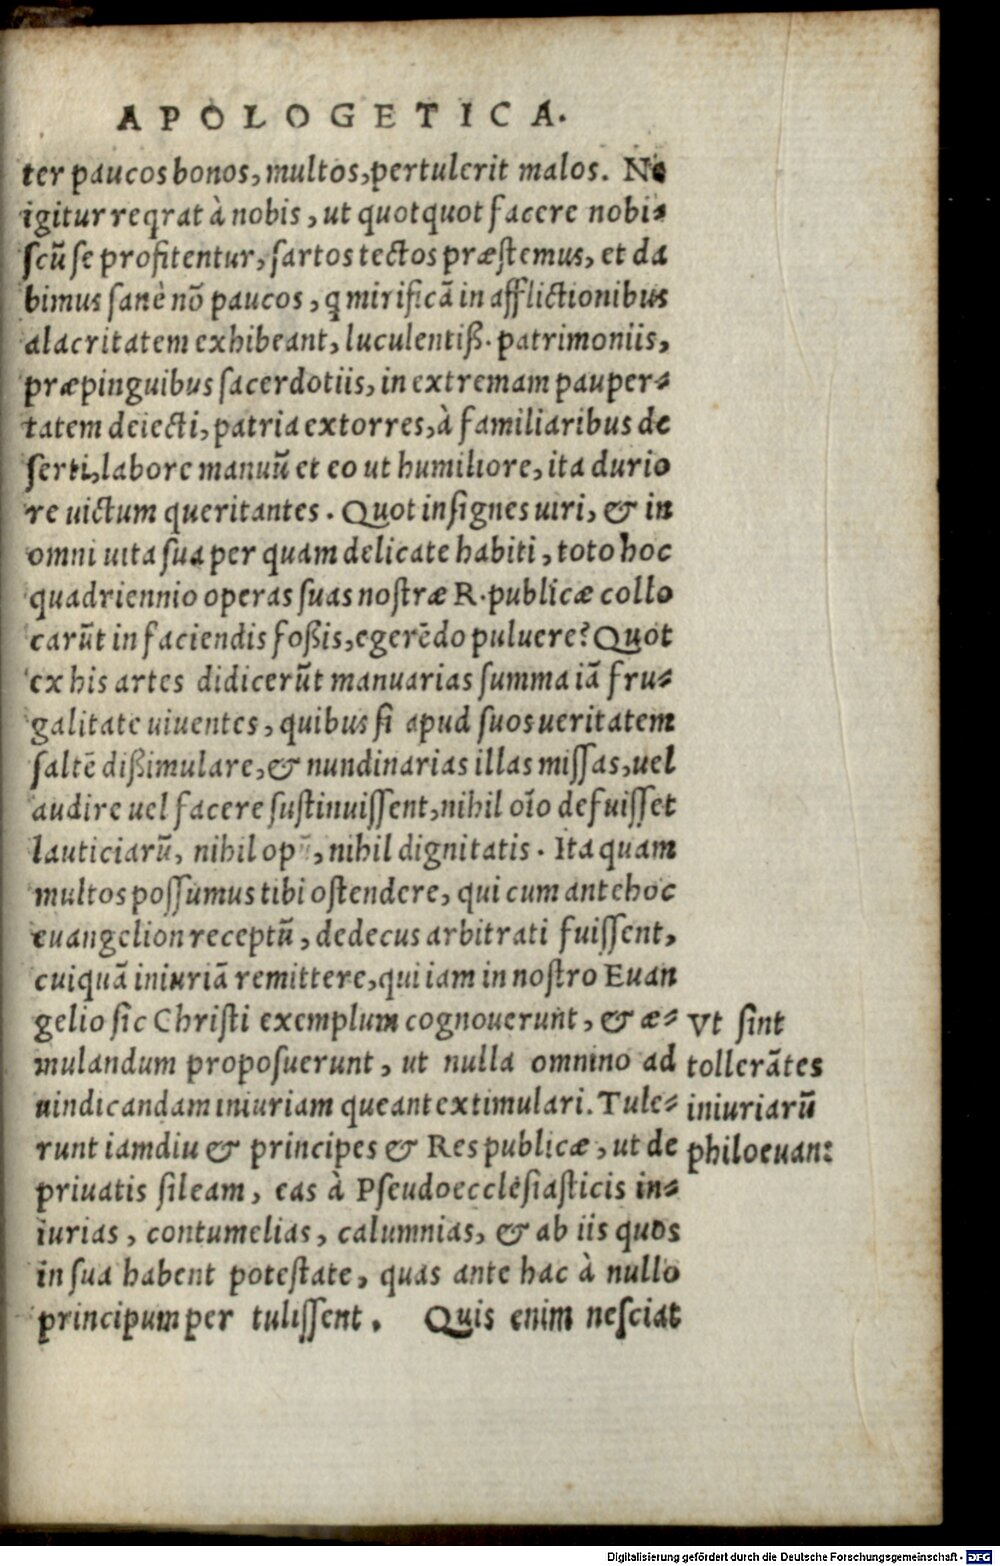 APOLOGETICA.
ter paucos bonos, multos, pertulerit malos. Ne
igitur reqrat à nobis, ut quotquot facere nobi⸗
scũ se profitentur, sartos tectos præstemus, et da
bimus sanè nõ paucos, q mirificã in afflictionibus
alacritatem exhibeant, luculentiß. patrimoniis,
præpinguibus sacerdotiis, in extremam pauper⸗
tatem deiecti, patria extorres, à familiaribus de
serti, labore manuũ et eo ut humiliore, ita durio
re uictum queritantes. Quot insignes uiri, & in
omni uita sua per quam delicate habiti, toto hoc
quadriennio operas suas nostræ R. publicæ collo
carũt in faciendis foßis, egerẽdo puluere? Quot
ex his artes didicerũt manuarias summa iã fru⸗
galitate uiuentes, quibus si apud suos ueritatem
saltẽ dißimulare, & nundinarias illas missas, uel
audire uel facere sustinuissent, nihil oĩo defuisset
lauticiarũ, nihil op̃, nihil dignitatis. Ita quam
multos possumus tibi ostendere, qui cum ante hoc
euangelion receptũ, dedecus arbitrati fuissent,
cuiquã iniuriã remittere, qui iam in nostro Euan
gelio sic Christi exemplum cognouerunt, & æ⸗
mulandum proposuerunt, ut nulla omnino ad
uindicandam iniuriam queant extimulari. Tule⸗
runt iamdiu & principes & Res publicæ, ut de
priuatis sileam, eas à Pseudoecclesiasticis in⸗
iurias, contumelias, calumnias, & ab iis quos
in sua habent potestate, quas ante hac à nullo
principum per tulissent. Quis enim nesciat
Vt sint
tollerãtes
iniuriarũ
philoeuan:
Digitalisierung gefördert durch die Deutsche Forschungsgemeinschaft - DFG